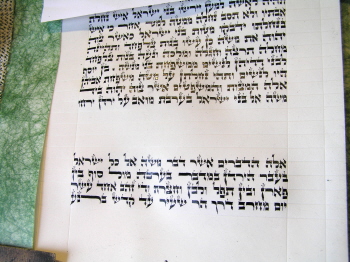 תהיה לאשה למען יירשו בני ישראל איש נחלת
אבתיו ולא תסב נחלה ממטה למטה אחר כי איש
בנחלתו ידבקו מטות בני ישראל כאשר צוה
יהוה את משה כן עשו בנות צלפחד ותהיינה
מחלה תרצה וחגלה ומלכה ונעה בנות צלפחד
לבני דדיהן לנשים ממשפחת בני מנשה בן יוסף
היו לנשים ותהי נחלתן על מטה משפחת אביהן
אלה המצות והמשפטים אשר צוה יהוה ביד
משה אל בני ישראל בערבת מואב על ירדן ירחו
אלה הדברים אשר דבר משה אל כל ישראל
בעבר הירדן במדבר בערבה מול סוף בין
פארן ובין תפל ולבן וחצרת ודי זהב אחד עשר
יום מחרב דרך הר שעיר עד קדש ברנע